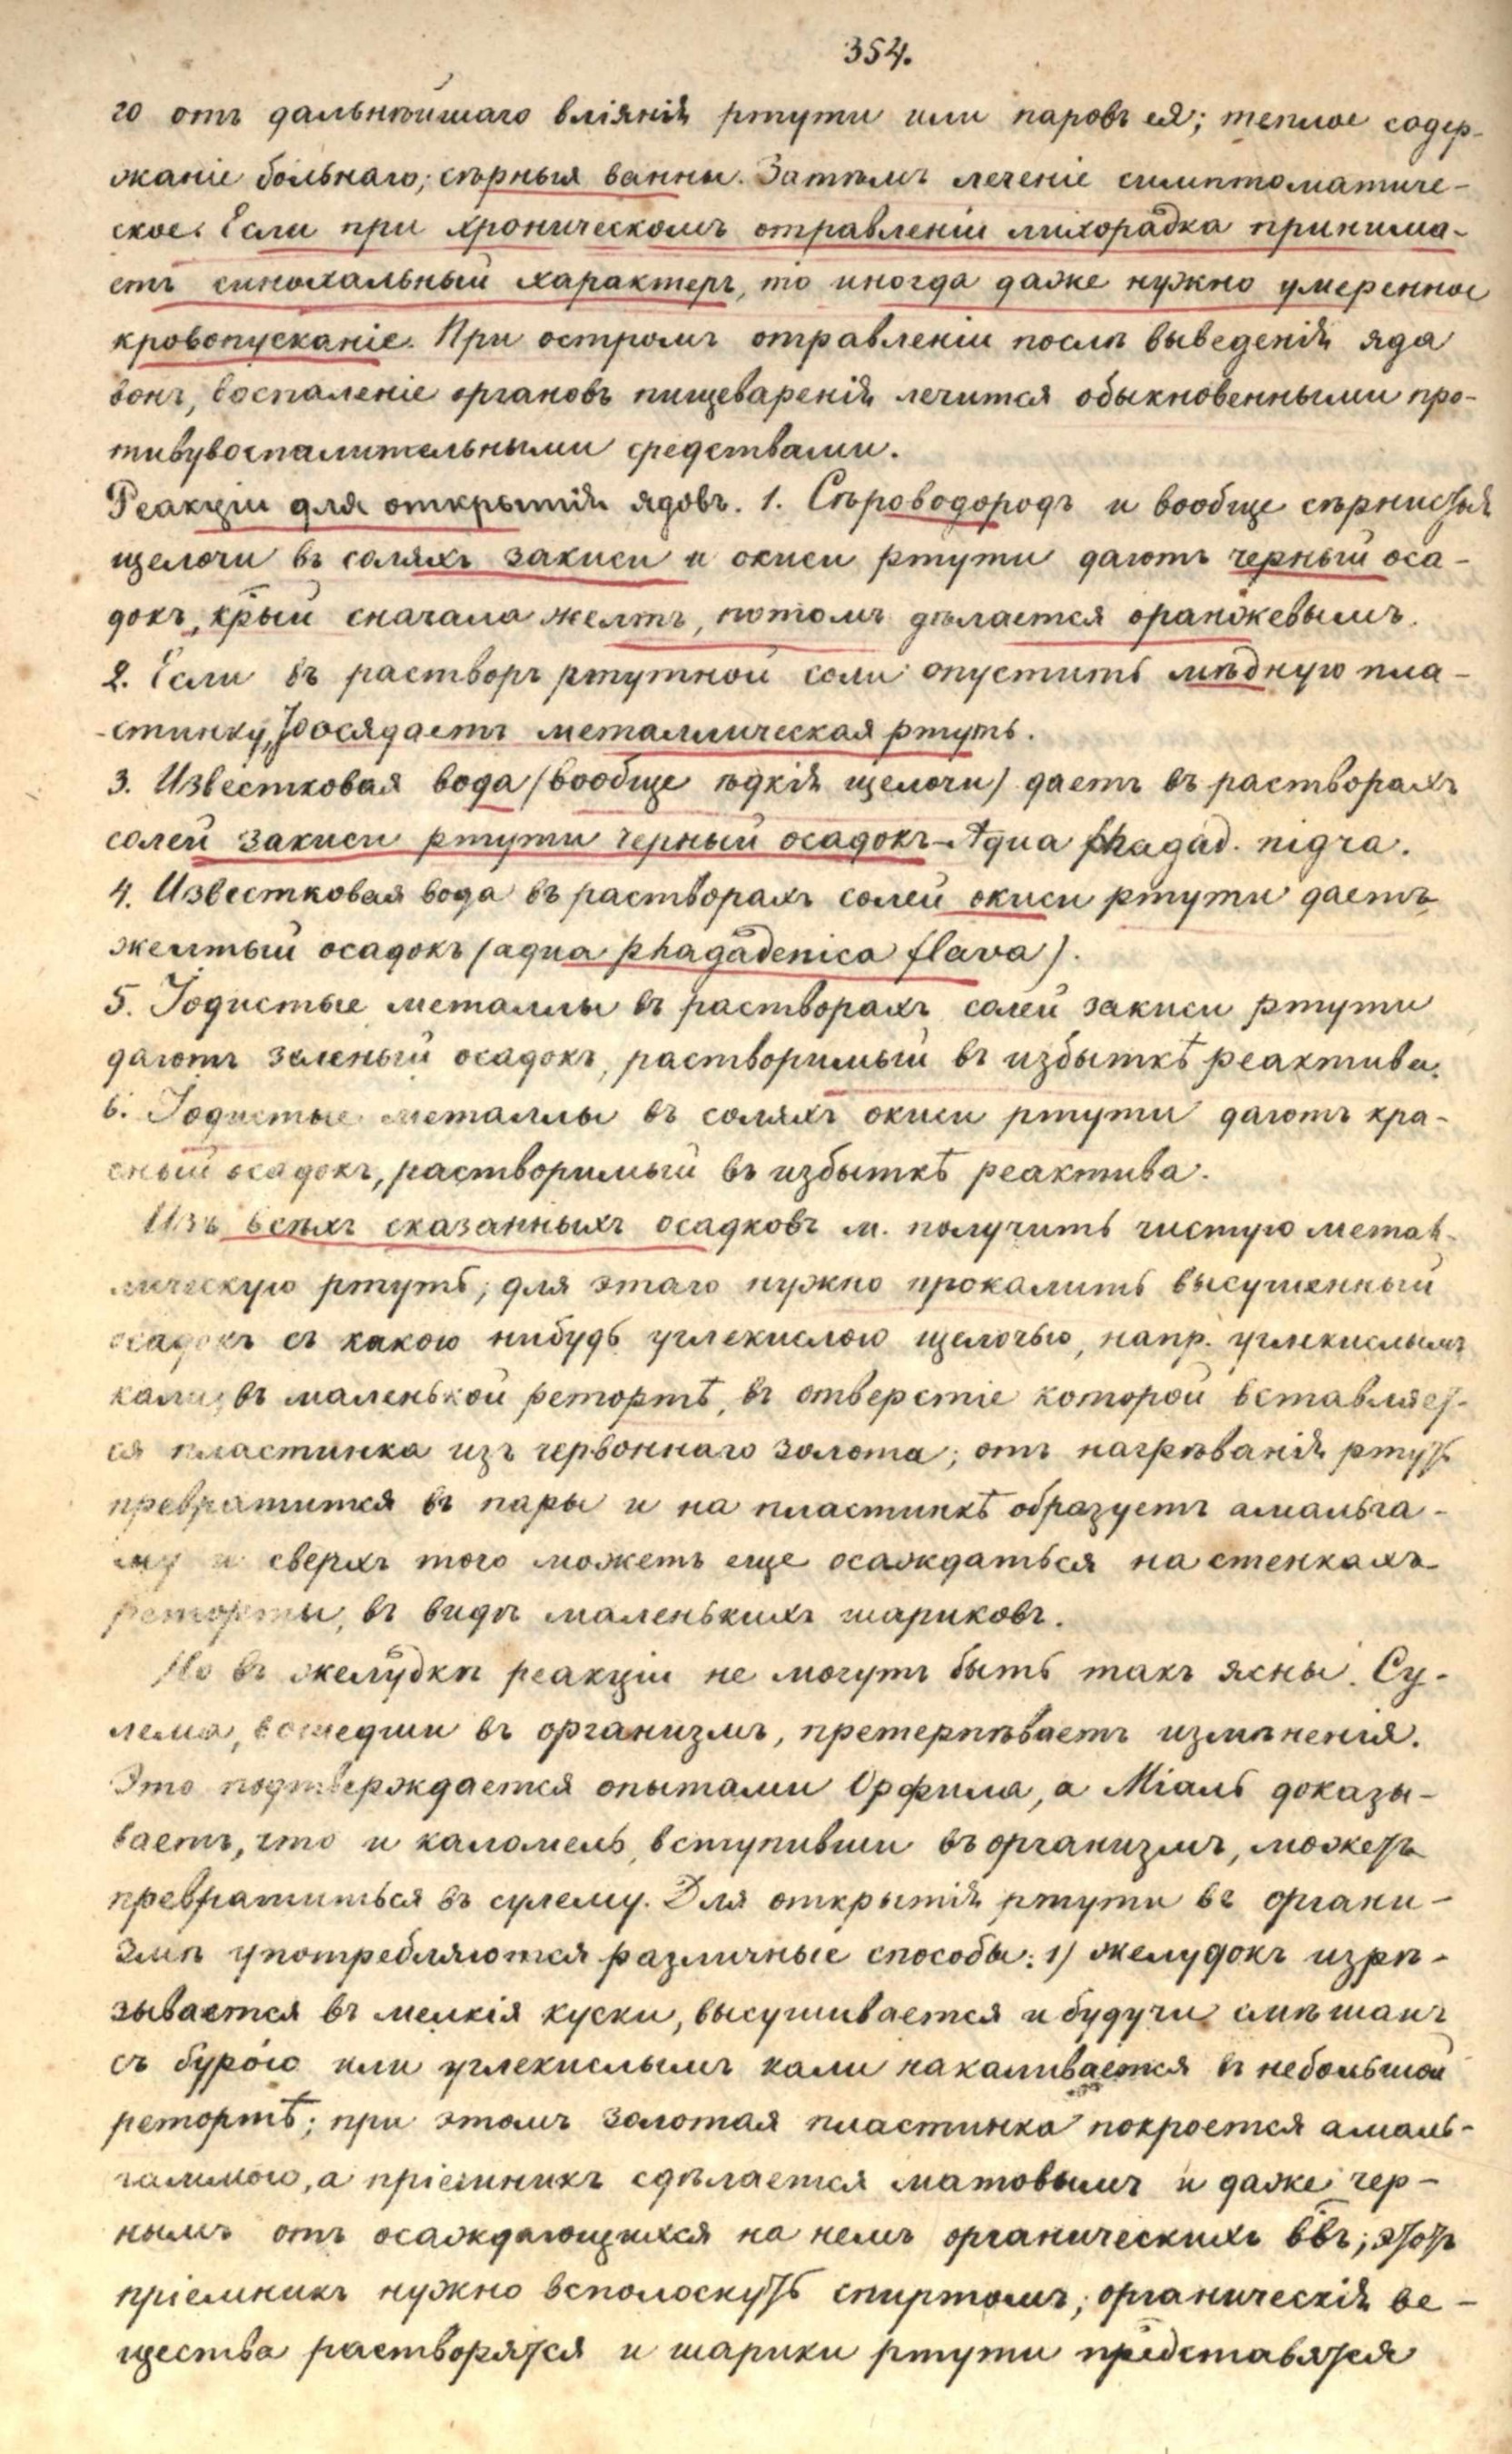 354.
го отъ дальнѣйшаго вліянія ртути или паровъ ея; теплое содер-
жаніе больнаго; сѣрныя ванны. Затѣмъ леченіе симптоматиче-
ское. Если при хроническомъ отравленіи лихорадка принима-
етъ синохальный характеръ, то иногда даже нужно умеренное
кровопусканіе. При остромъ отравленіи послѣ выведенія яда
вонъ, воспаленіе органовъ пищеваренія лечится обыкновенными про-
тивувоспалительными средствами.
Реакціи для открытія ядовъ. 1. Сѣроводородъ и вообще сѣрнистыя
щелочи въ соляхъ закиси и окиси ртути даютъ черный оса-
докъ, крый сначала желтъ, потомъ дѣлается оранжевымъ.
2. Если въ растворъ ртутной соли опустить мѣдную пла-
-стинку, то осядаетъ металлическая ртуть.
3. Известковая вода (вообще ѣдкія щелочи) даетъ въ растворахъ
солей закиси ртути черный осадокъ – Aqua phagad. nigra.
4. Известковая вода въ растворахъ солей окиси ртути даетъ
желтый осадокъ (aqua phagadenica flava).
5. Іодистые металлы въ растворахъ солей закиси ртути
даютъ зеленый осадокъ, растворимый въ избыткѣ реактива.
6. Іодистые металлы въ соляхъ окиси ртути даютъ кра-
сный осадокъ, растворимый въ избыткѣ реактива.
Изъ всѣхъ сказанныхъ осадковъ м. получить чистую метал-
лическую ртуть; для этаго нужно прокалить высушенный
осадокъ съ какою нибудь углекислою щелочью, напр. углекислымъ
кали, въ маленькой ретортѣ, въ отверстіе которой вставляет-
ся пластинка изъ червоннаго золота; отъ нагрѣванія ртуть
превратится въ пары и на пластинкѣ образуетъ амальга-
му и сверхъ того можетъ еще осаждаться на стенкахъ
реторты, въ видѣ маленькихъ шариковъ.
Но въ желудкѣ реакціи не могутъ быть такъ ясны. Су-
лема, вошедши въ организмъ, претерпѣваетъ измѣненія.
Это подтверждается опытами Орфила, а Міаль доказы-
ваетъ, что и каломель, вступивши въ организмъ, можетъ
превратиться въ сулему. Для открытія ртути въ органи-
змѣ употребляются различные способы: 1) желудокъ изрѣ-
зывается въ мелкія куски, высушивается и будучи смѣшанъ
съ бурою или углекислымъ кали накаливается въ небольшой
ретортѣ; при этомъ золотая пластинка покроется амаль-
гаммою, а пріемникъ сдѣлается матовымъ и даже чер-
нымъ отъ осаждающихся на немъ органическихъ ввъ; этотъ
пріемникъ нужно всполоскуть спиртомъ; органическія ве-
щества растворятся и шарики ртути представятся